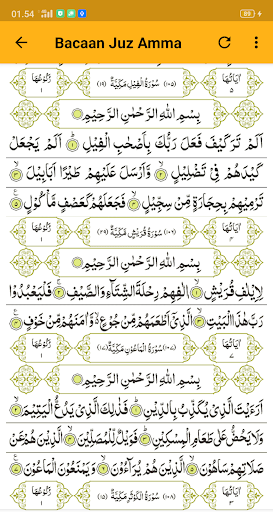 01.54 89
Bacaan Juz Amma
اٰيَاتُهَا ٥ (١٠٥) سُوْرَةُ الْفِيْلِ مَكِّيَّةٌ (١٩) رُكُوْعُهَا ١
بِسْمِ اللهِ الرَّحْمٰنِ الرَّحِيْمِ
اَلَمْ تَرَ كَيْفَ فَعَلَ رَبُّكَ بِاَصْحٰبِ الْفِيْلِ ۝١ اَلَمْ يَجْعَلْ
كَيْدَهُمْ فِيْ تَضْلِيْلٍ ۝٢ وَاَرْسَلَ عَلَيْهِمْ طَيْرًا اَبَابِيْلَ ۝٣
تَرْمِيْهِمْ بِحِجَارَةٍ مِّنْ سِجِّيْلٍ ۝٤ فَجَعَلَهُمْ كَعَصْفٍ مَّاْكُوْلٍ ۝٥
اٰيَاتُهَا ٤ (١٠٦) سُوْرَةُ قُرَيْشٍ مَكِّيَّةٌ (٢٩) رُكُوْعُهَا ١
بِسْمِ اللهِ الرَّحْمٰنِ الرَّحِيْمِ
لِاِيْلٰفِ قُرَيْشٍ ۝١ اٖلٰفِهِمْ رِحْلَةَ الشِّتَآءِ وَالصَّيْفِ ۝٢ فَلْيَعْبُدُوْا
رَبَّ هٰذَا الْبَيْتِ ۝٣ الَّذِيْٓ اَطْعَمَهُمْ مِّنْ جُوْعٍ وَّاٰمَنَهُمْ مِّنْ خَوْفٍ ۝٤
اٰيَاتُهَا ٧ (١٠٧) سُوْرَةُ الْمَاعُوْنِ مَكِّيَّةٌ (١٧) رُكُوْعُهَا ١
بِسْمِ اللهِ الرَّحْمٰنِ الرَّحِيْمِ
اَرَءَيْتَ الَّذِيْ يُكَذِّبُ بِالدِّيْنِ ۝١ فَذٰلِكَ الَّذِيْ يَدُعُّ الْيَتِيْمَ ۝٢
وَلَا يَحُضُّ عَلٰى طَعَامِ الْمِسْكِيْنِ ۝٣ فَوَيْلٌ لِّلْمُصَلِّيْنَ ۝٤ الَّذِيْنَ هُمْ عَنْ
صَلَاتِهِمْ سَاهُوْنَ ۝٥ الَّذِيْنَ هُمْ يُرَآءُوْنَ ۝٦ وَيَمْنَعُوْنَ الْمَاعُوْنَ ۝٧
اٰيَاتُهَا ٣ (١٠٨) سُوْرَةُ الْكَوْثَرِ مَكِّيَّةٌ (١٥) رُكُوْعُهَا ١